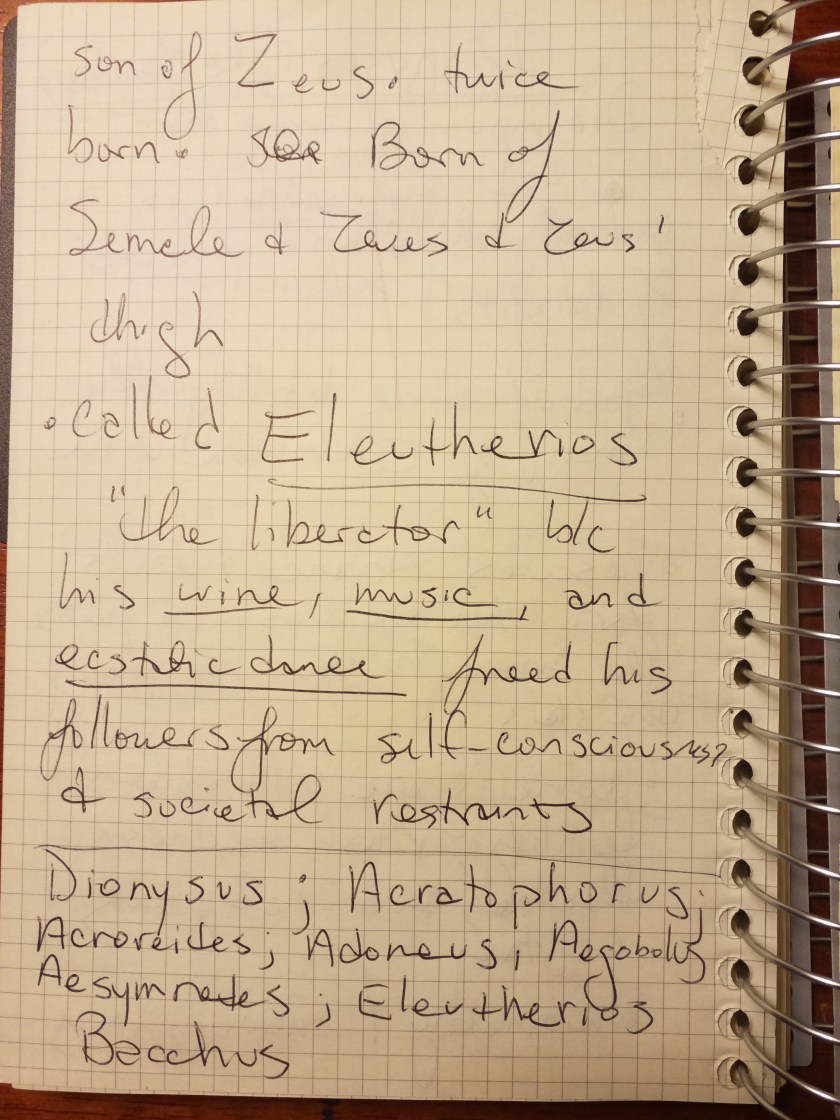 son of Zeus. twice
born. Born of
Semele & Zeues & Zeus'
thigh
• called Eleutherios
"the liberator" b/c
his wine, music, and
ecstatic dance freed his
followers from self-consciousness?
& societal restraints
Dionysus; Acratophorus;
Acroreites; Adoneus; Aegobolus
Aesymnetes; Eleutherios
Bacchus